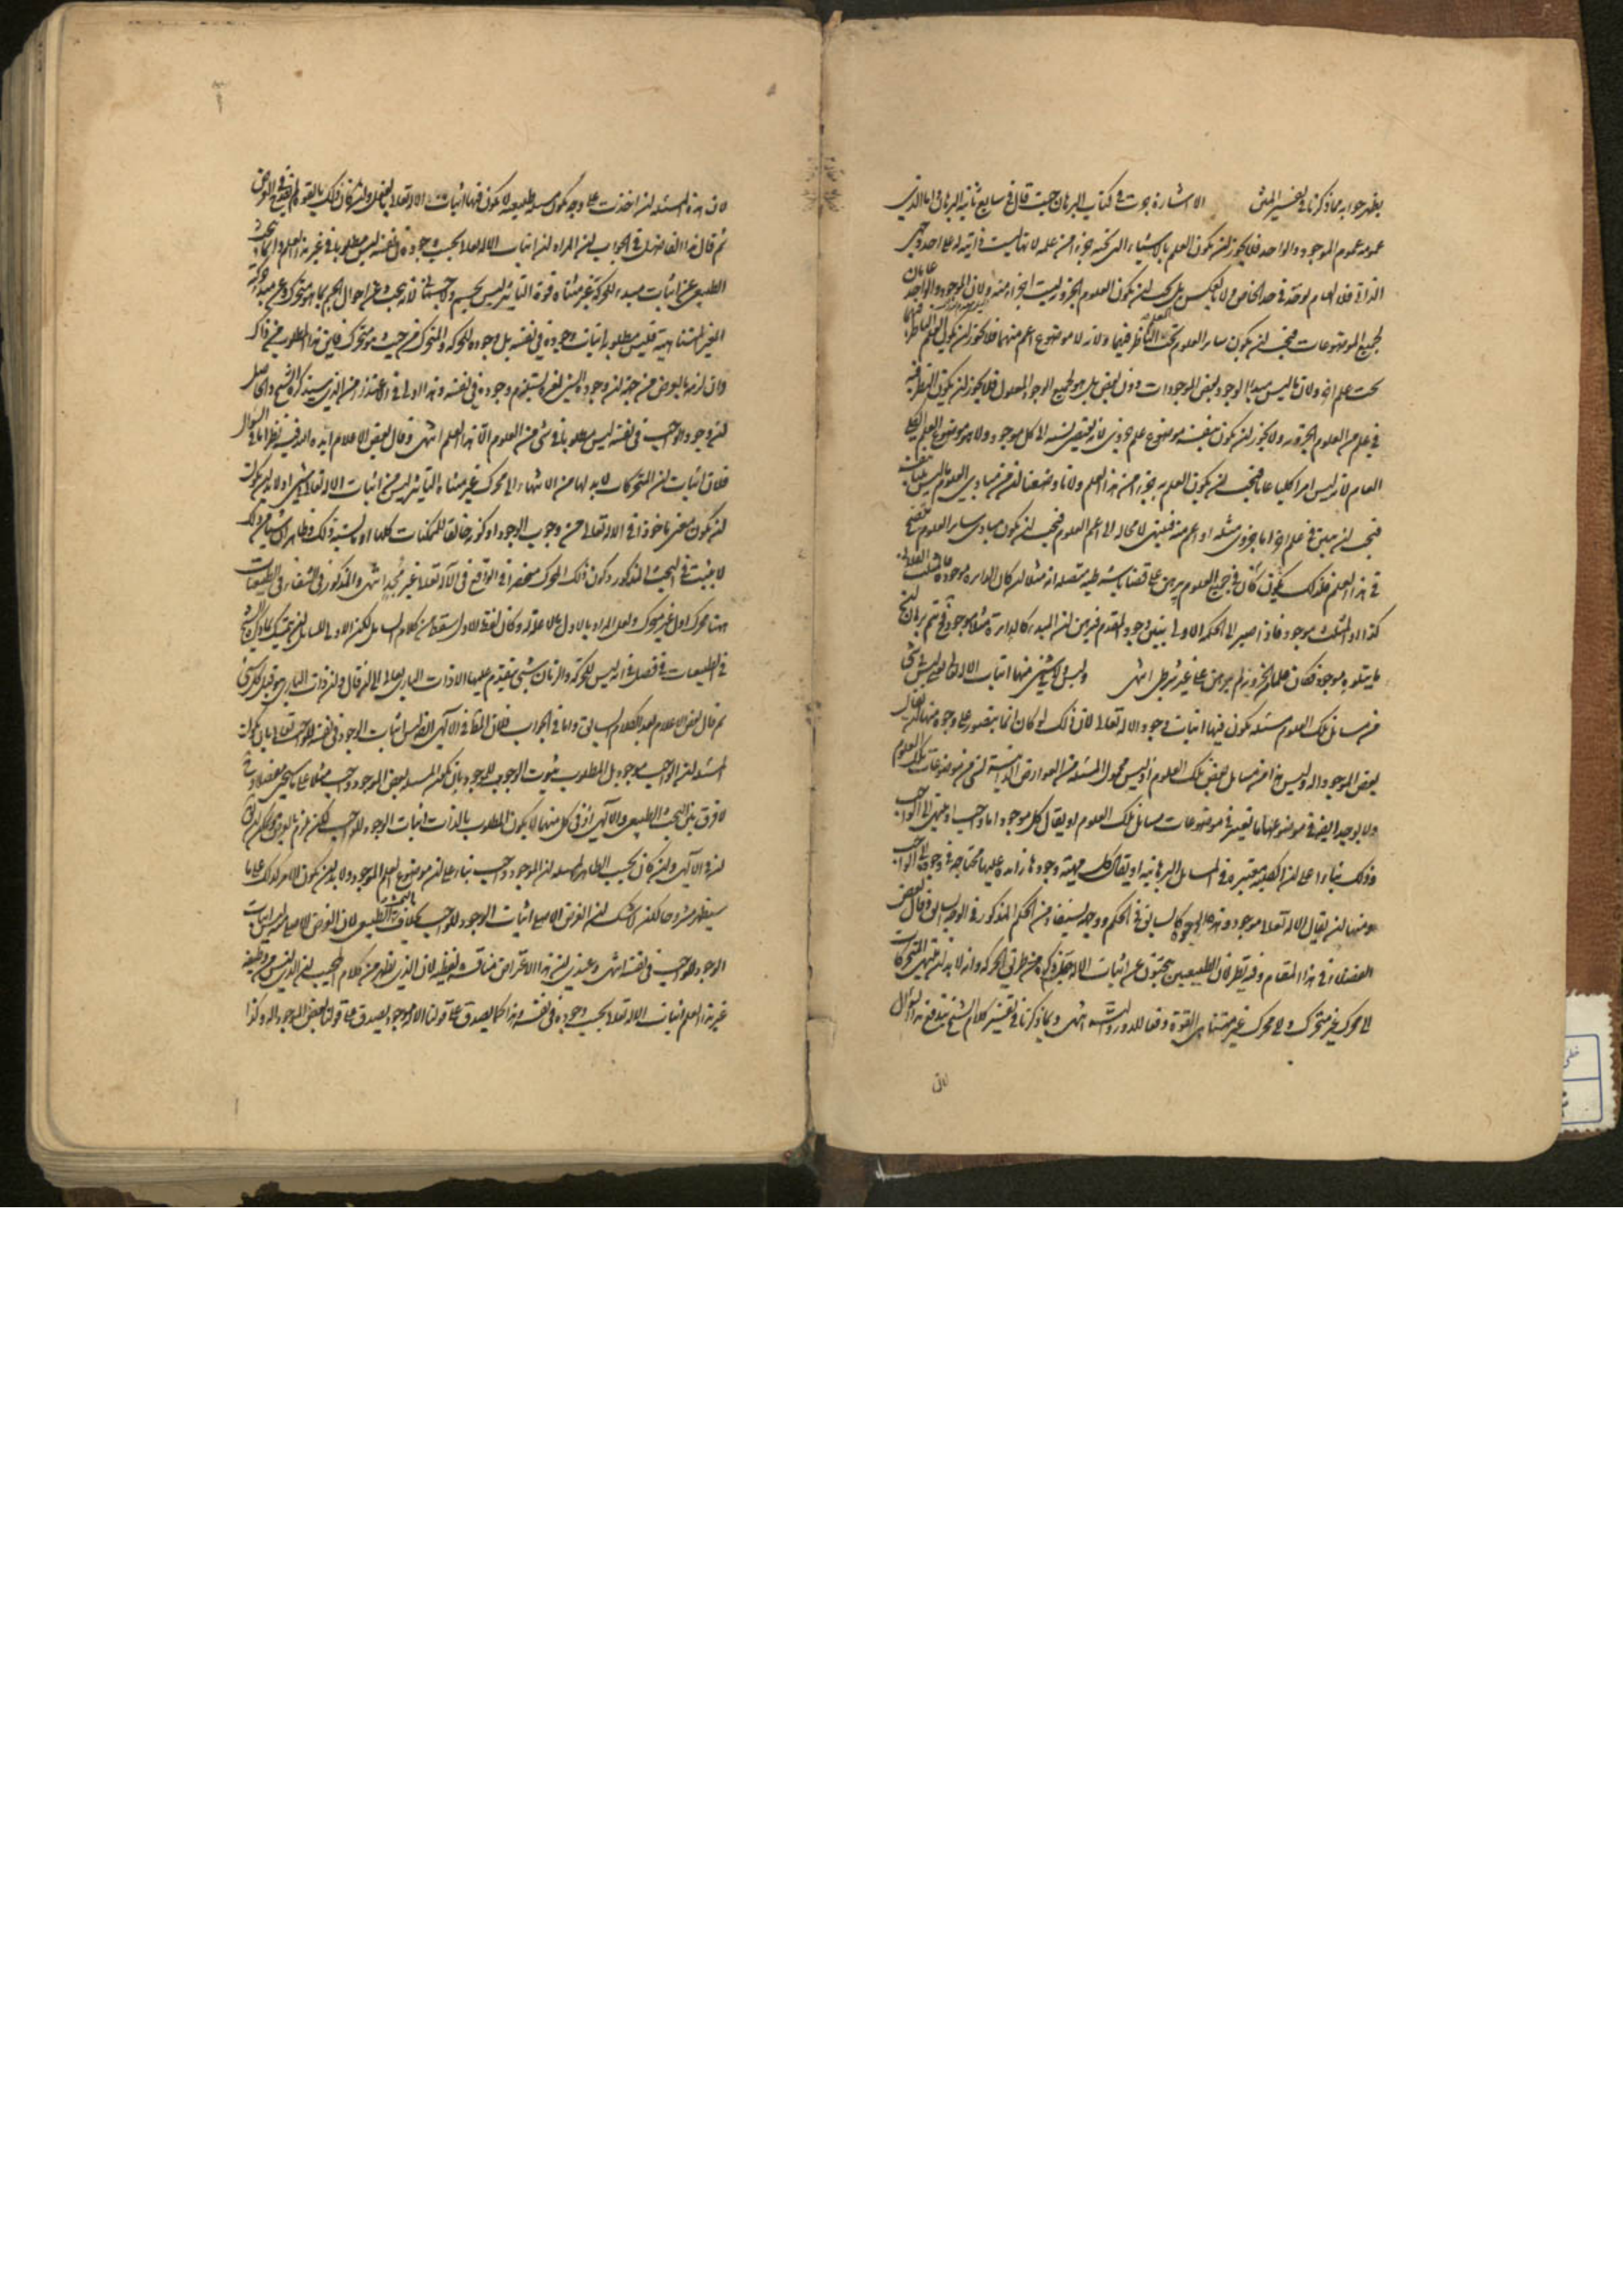 يظهر جوابه مما ذكرنا في تفسير المتن الاشارة جرت في كتاب البرهان حيث قال في سابع ثانية البرهان واما الذي
عمومه عموم الموجود والواحد فلا يجوز ان يكون العلم بالاشياء التي تحته جزءا من علمه لانها ليست ذاتية له على احد وجهي
الذاتي فلا العام يوخذ في حد الخاص ولا بالعكس بل يجب ان يكون العلوم الجزوية ليست اجزاء منه ولان الموجود والواحد عامان
لجميع الموضوعات فيجب ان يكون ساير العلوم تحت العلم الناظر فيهما ولانه لا موضوع اعم منهما فلا يجوز ان يكون العلم الناظر فيهما
تحت علم اخر ولان ما ليس مبدا لوجود بعض الموجودات دون بعض بل هو لجميع الوجود المعلول فلا يجوز ان يكون النظر فيه
في علم من العلوم الجزوية ولا يجوز ان يكون بنفسه موضوع علم جزوي لانه يقتضي نسبة الى كل موجود ولا هو موضوع العلم الكلي
العام لانه ليس امرا كليا عاما فيجب ان يكون العلم به جزءا من هذا العلم ولانا وضعنا ان من مبادي العلوم ما ليس بينا بنفسه
فيجب ان يبين في علم اخر اما جزوي مثله او اعم منه فينتهي لا محالة الى اعم العلوم فيجب ان يكون مبادي ساير العلوم تصح
في هذا العلم فلذلك يكون كأن جميع العلوم يبرهن على قضايا شرطية متصلة انه مثلا ان كان الدايرة موجودة فالمثلث الفلاني
كذا او المثلث موجود فاذا صير الى الحكمة الاولى يبين وجود المقدم فيبرهن ان المبدء كالدايرة مثلا موجود فحينئذ تم برهان ان
ما يتلوه موجود فكان علما من الجزوية لم يبرهن على غير شرطي انتهى وليس ولا شيء منها اثبات الاله تعالى ليس شيء
من مسايل تلك العلوم مسئلة يكون فيها اثبات وجود الاله تعالى لان ذلك لو كان انما يتصور على وجوه منها ان يقال
بعض الموجود اله وليس هذا من مسايل بعض تلك العلوم اذ ليس محمول المسئلة من العوارض الذاتية لشيء من موضوعات تلك العلوم
ولا يوجد ايضا في موضوعها ما يعتبر في موضوعات مسايل تلك العلوم او يقال كل موجود اما واجب او ينتهي الى الواجب
وذلك بناء على ان الكلية معتبرة في المسايل البرهانية او يقال كل مهية وجودها زايدة عليها محتاجة في وجودها الى الواجب
ومنها ان يقال الاله تعالى موجود وهذه الوجوه كالسابق في الحكم ووجهه يستفاد من الحكم المذكور في الوجه السابق وقال بعض
الفضلاء في هذا المقام وفيه نظر لان الطبيعيين يبحثون عن اثبات الاله جل ذكره من طريق الحركة وانه لا بد ان ينتهي المتحركات
الى محرك غير متحرك والى محرك غير متناهي القوة دفعا للدور والتس انتهى وبما ذكرنا في تفسير كلام الشيخ يندفع هذا السؤال
لان
لان هذه المسئلة ان اخذت على وجه يكون مسئلة طبيعية لا يكون فيها اثبات الاله تعالى
ثم قال هذا الفاضل في الجواب ان المراد ان اثبات الاله تعالى بحسب وجوده في نفسه ليس مطلوبا في غير هذا العلم واما بحث
الطبيعي عن اثبات مبدء للحركة غير متناه قوة التاثير ليس بجسم ولا جسماني لانه يبحث عن احوال الجسم بما هو متحرك وعن مبدء حركته
الغير المتناهية فليس مطلوبه اثبات وجوده في نفسه بل وجوده للحركة والمتحرك من حيث هو متحرك فاين هذا المطلوب من ذاك
وان لزمه بالعرض من جهة ان وجود الشيء لغيره يستلزم وجوده في نفسه وهذا اولى في الاعتذار من الذي سيذكره الشيخ والحاصل
ان وجود الواجب في نفسه ليس مطلوبا في شيء من العلوم الا هذا العلم انتهى وقال بعض الاعلام ايده الله وفيه نظر اما في السؤال
فلان اثبات ان المتحركات لا بد لها من الانتهاء الى محرك غير متناه التاثير ليس من اثبات الاله تعالى في شيء اذ لا بد
ان يكون معنى ماخوذا في الاله تعالى من وجوب الوجود او كونه خالقا للممكنات كلها او ما يشبه ذلك وظاهر ان شيئا من ذلك
لا يثبت في البحث المذكور وكون ذلك المحرك منحصرا في الواقع في الاله تعالى غير مجد انتهى والمذكور في الشفاء في الطبيعيات
ههنا محرك اول غير متحرك ولعل المراد بالاول ما لا علة له وكان لفظ الاول سقط من كلام السايل لكن الاولى للسايل ان يتمسك بما ذكره الشيخ
في الطبيعيات في فصل في انه ليس للحركة والزمان شيء يتقدم عليهما الا ذات الباري تعالى الى ان قال وان ذات الباري هو قبل كل شيء
ثم قال بعض الاعلام بعد الكلام السابق واما في الجواب فلان اللقاء في الالهي ايضا ليس اثبات الوجود في نفسه للواجب تعالى بان يكون
المسئلة ان الواجب موجود بل المطلوب ثبوت الوجوب للوجود بان يكون المسئلة بعض الموجود واجب مثلا على ما سيجيء مفصلا و
لا فرق بين البحث الطبيعي والالهي اذ في كل منهما لا يكون المطلوب بالذات اثبات الوجود للواجب لكن لزم بالعرض
ان في الالهي وان كان بحسب الظاهر المسئلة ان الموجود واجب بناء على ان موضوع العلم الموجود ولا بد ان يكون الامر كذلك على ما
سيظهر مشروحا لكن لا شك ان الغرض الاصلي اثبات الوجود للواجب بخلاف البحث الطبيعي لان الغرض الاصلي ليس اثبات
الوجود للواجب في نفسه انتهى وعندي ان هذا الاعتراض مناقشة لفظية لان الذي يظهر من كلام المجيب ان الذي ليس من وظيفة
غير هذا العلم اثبات الاله تعالى بحسب وجوده في نفسه وهذا كما يصدق على قولنا الاله موجود يصدق على قولنا بعض الموجود اله وكذا